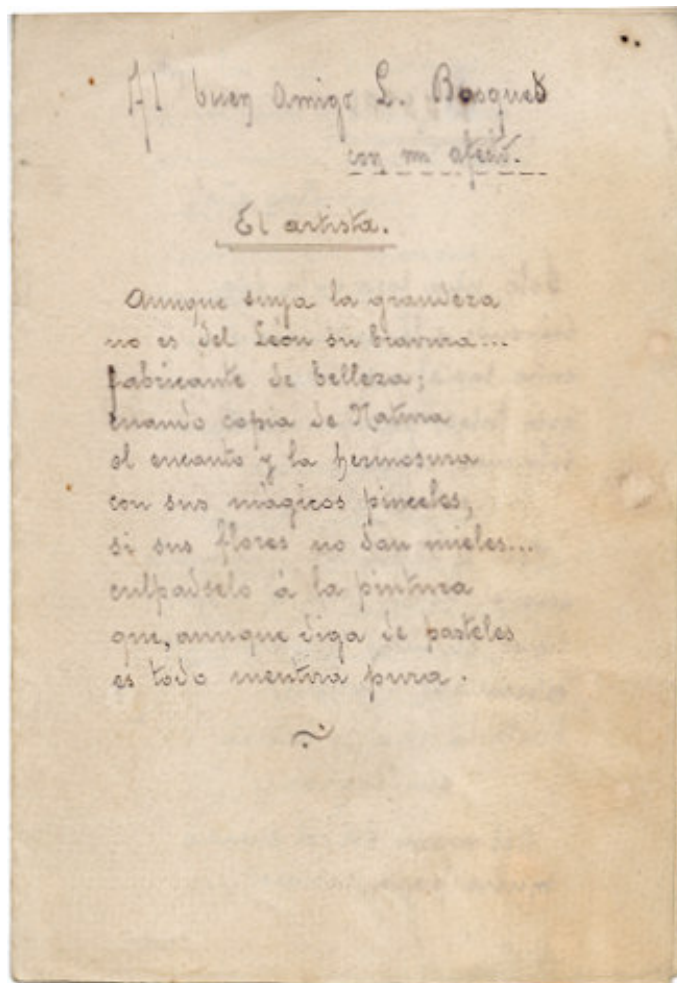 Al buen amigo L. Bosquets
con mi afecto.
El artista.
Aunque suya la grandeza
no es del León su bravura...
fabricante de belleza;
cuando copia de Natura
el encanto y la hermosura
con sus mágicos pinceles,
si sus flores no dan mieles...
culpádselo á la pintura
que, aunque diga de pasteles
es todo mentira pura.